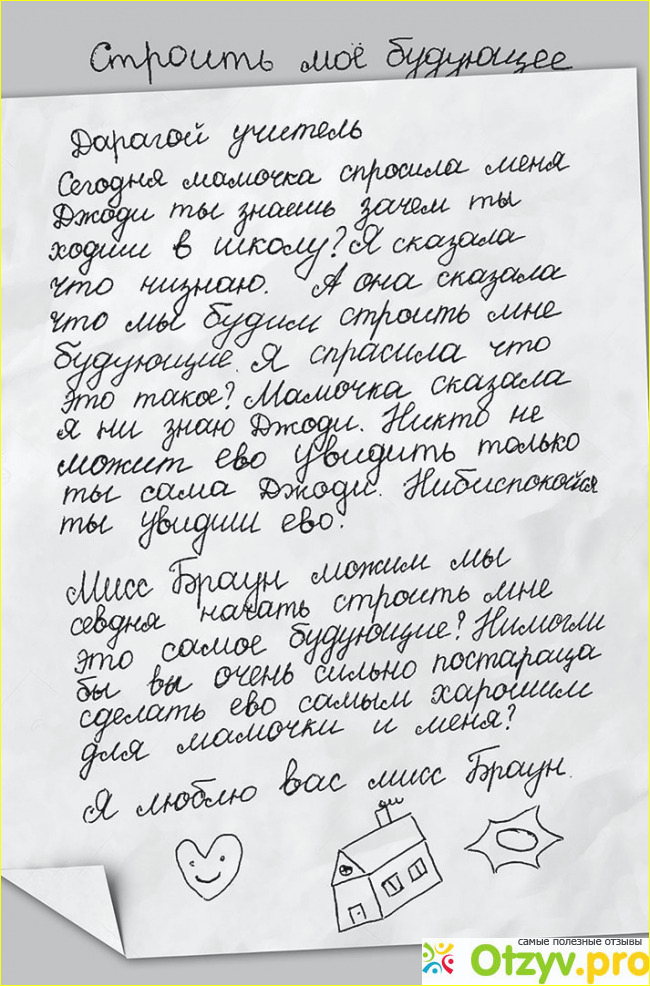 Строить моё будующее
Дарагой учитель
Сегодня мамочка спросила меня
Джоди ты знаешь зачем ты
ходиш в школу? Я сказала
что низнаю. А она сказала
что мы будим строить мне
будующие. Я спрасила что
это такое? Мамочка сказала
я ни знаю Джоди. Никто не
можит ево увидить только
ты сама Джоди. Нибиспокойся
ты увидиш ево.
Мисс Браун можим мы
севдня начать строить мне
это самое будующие? Нимогли
бы вы очень сильно постараца
сделать ево самым харошим
для мамочки и меня?
Я люблю вас мисс Браун.
самые полезные отзывы
Otzyv.pro